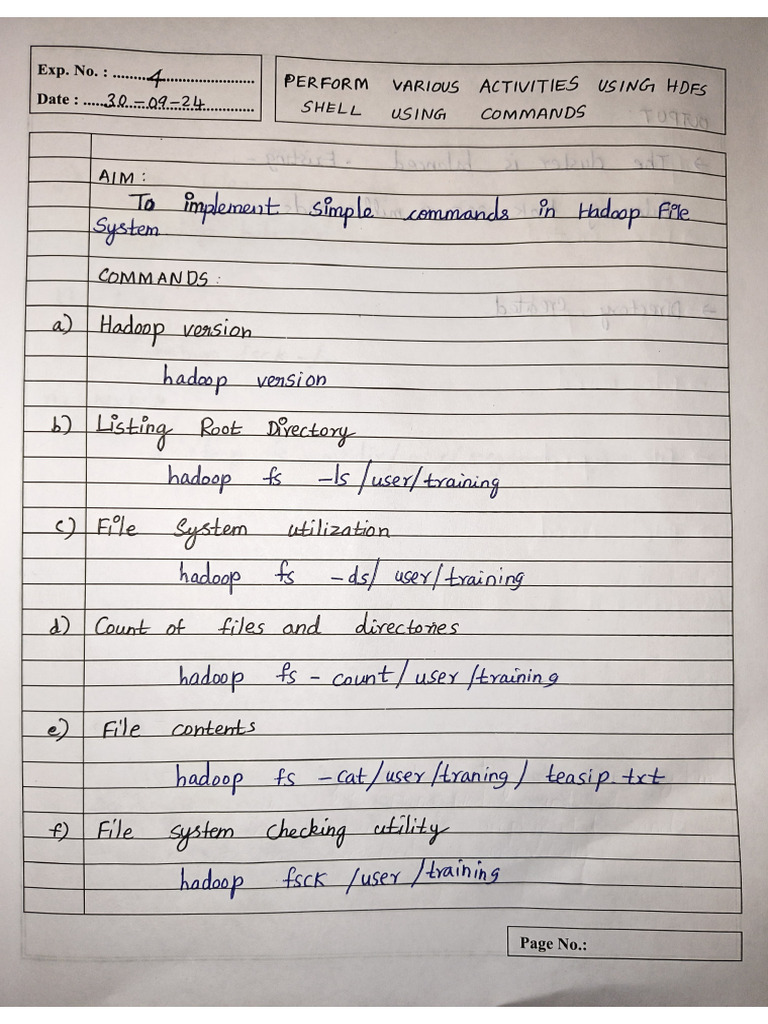 Exp. No. : ........4........................
Date : ......30-09-24..............
PERFORM VARIOUS ACTIVITIES USING HDFS
SHELL USING COMMANDS
AIM :
To implement simple commands in Hadoop File
System
COMMANDS :
a) Hadoop version
hadoop version
b) Listing Root Directory
hadoop fs -ls /user/training
c) File System utilization
hadoop fs -ds/ user/training
d) Count of files and directories
hadoop fs - count / user /training
e) File contents
hadoop fs -cat/user/traning/ teasip.txt
f) File system checking utility
hadoop fsck /user /training
Page No.: